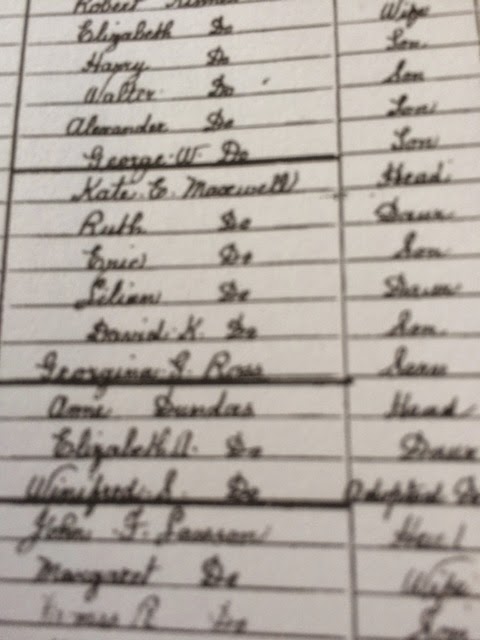 Robert
Elizabeth Do Wife
Harry Do Son
Walter Do Son
Alexander Do Son
George W. Do Son
Kate E. Maxwell Head
Ruth Do Daur
Eric Do Son
Lilian Do Daur
David K. Do Son
Georgina G. Ross
Dundas Head
Elizabeth A. Do Daur
Winifred S. Do Adopted
John F. Lawson Head
Margaret Do Wife
Do Son